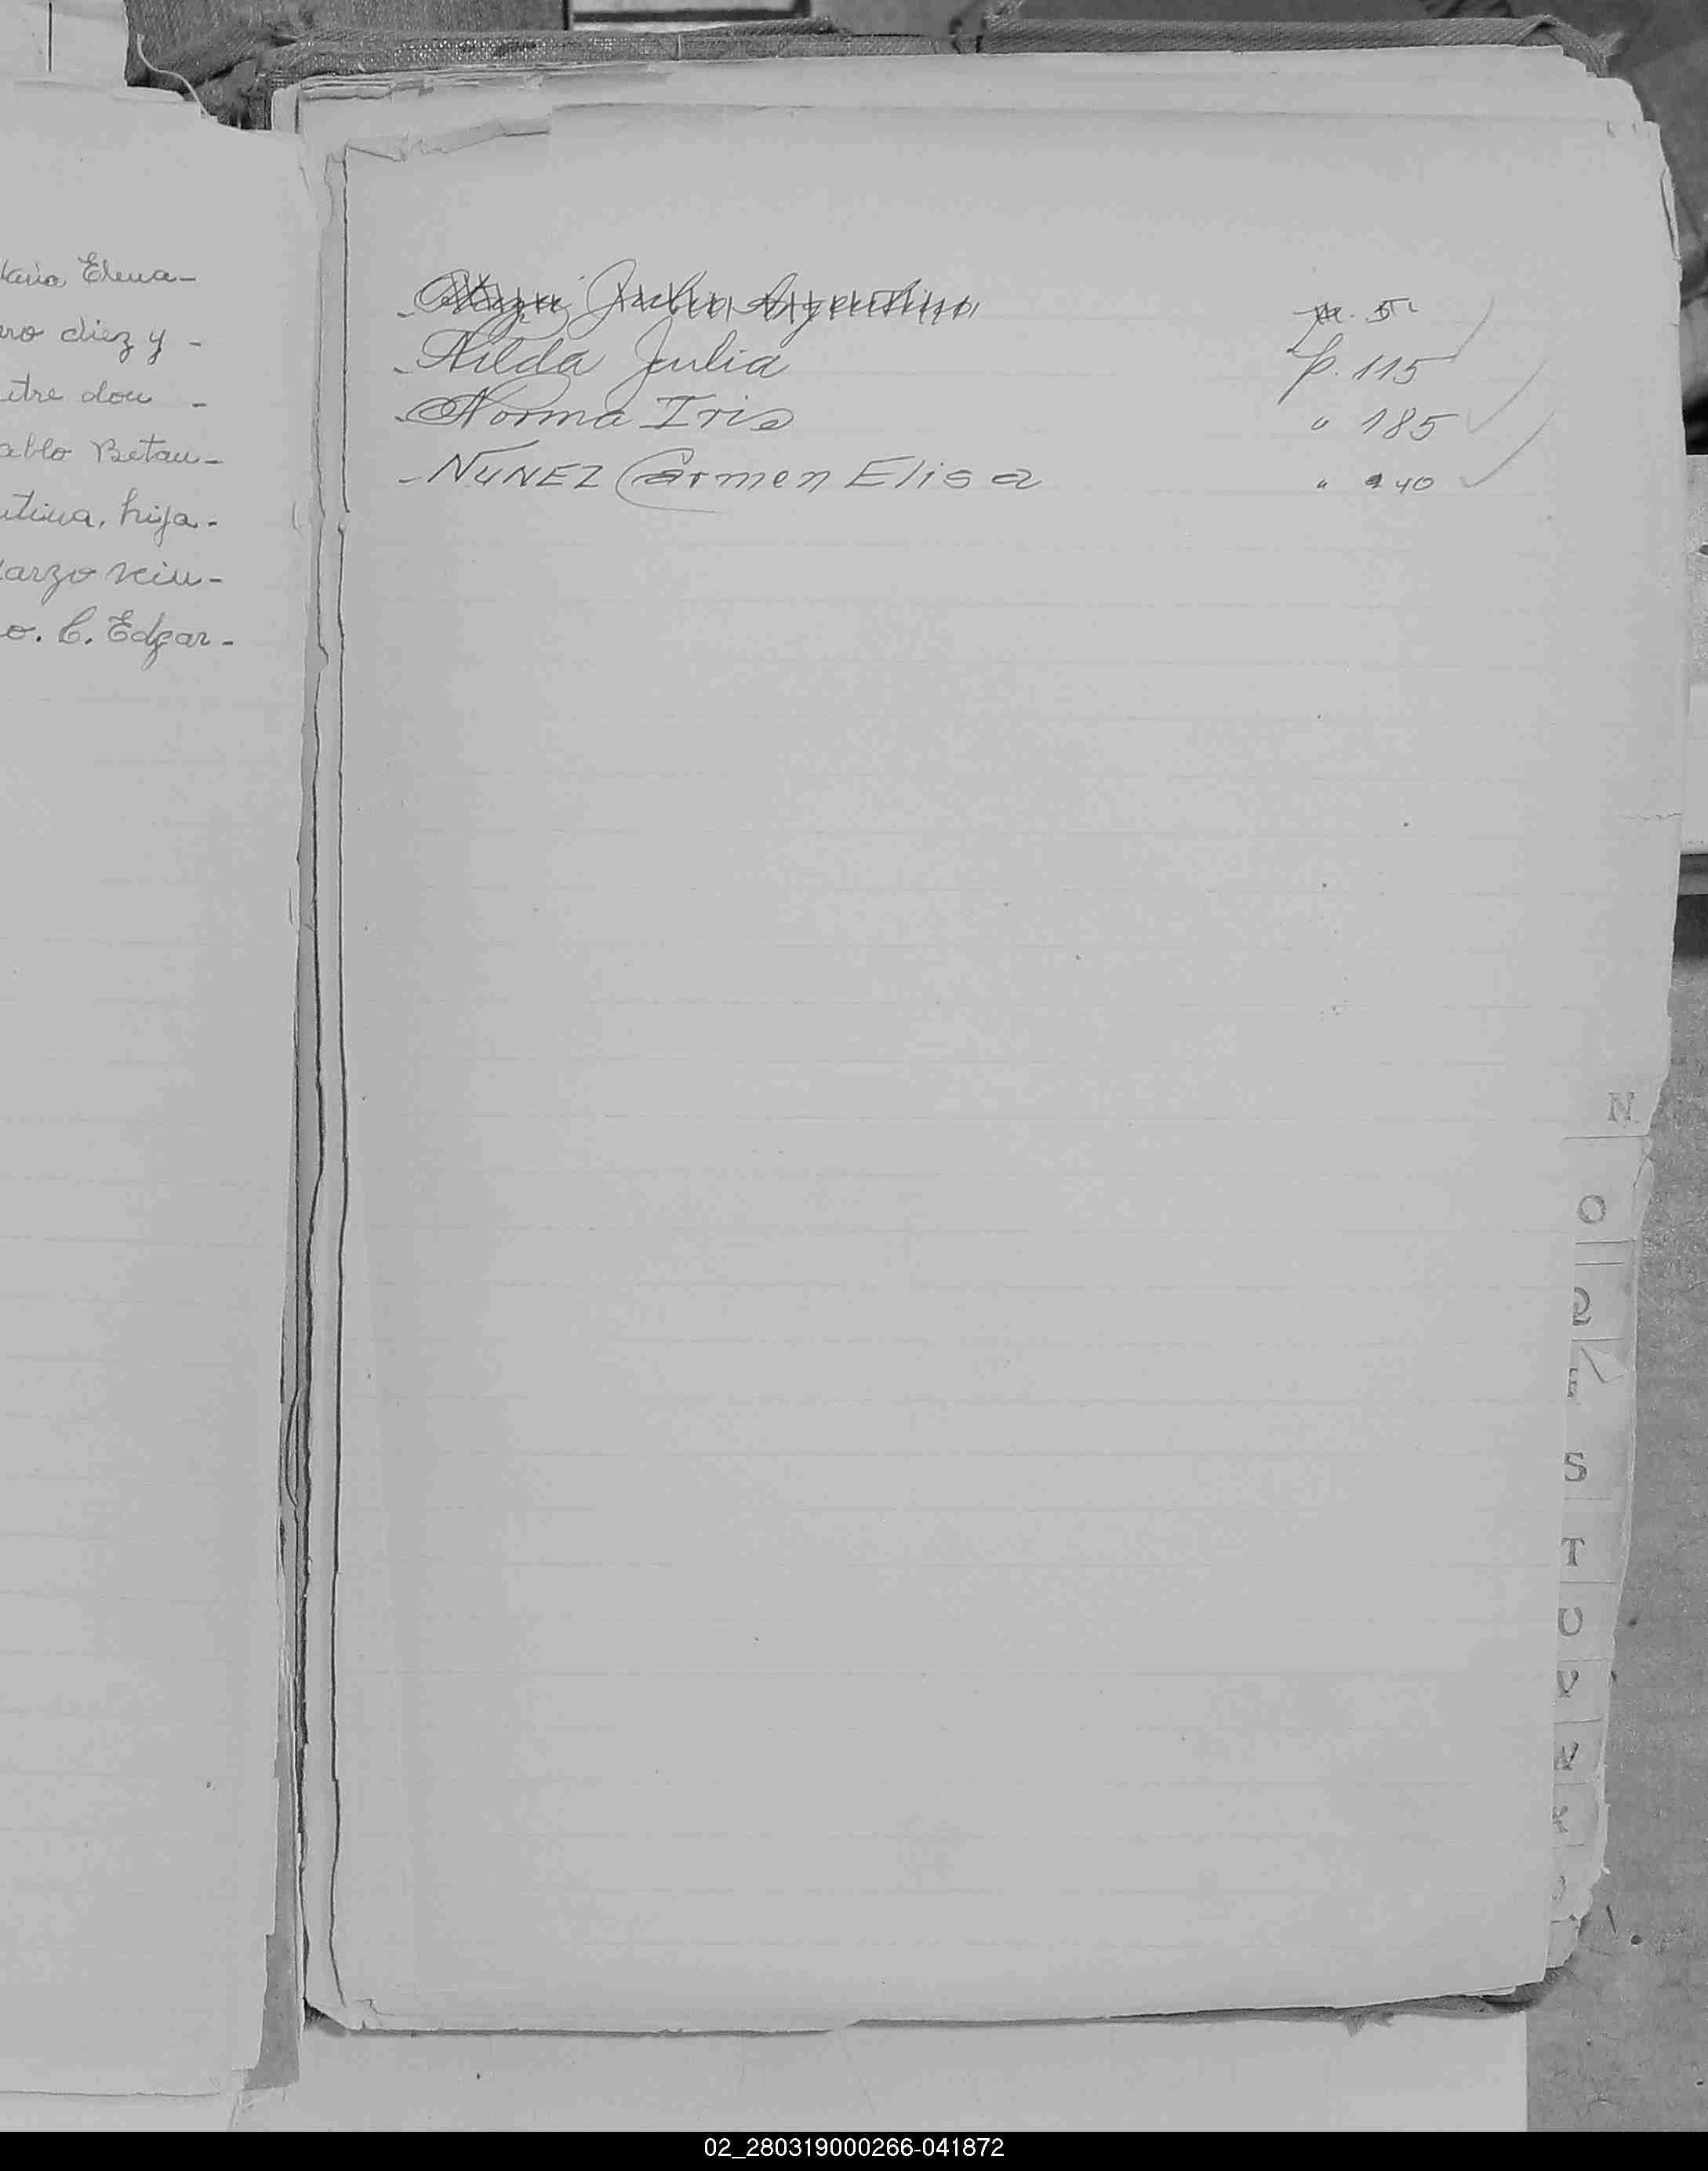 Maria Elena-
ro diez y -
itre don -
ablo Betan-
ntina, hija-
arzo vein-
o. C. Edgar-
Julia Argentina
- Nilda Julia p. 115
- Norma Iris " 185
- NUNEZ Carmen Elisa " 240
N
O
Q
S
T
U
V
02_280319000266-041872